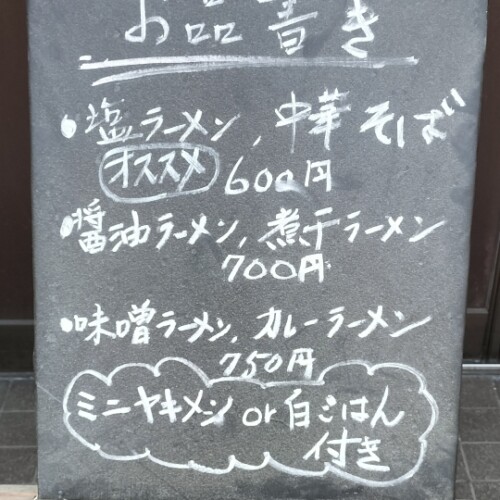 お品書き
・塩ラーメン,中華そば
オススメ 600円
・醤油ラーメン,煮干ラーメン
700円
・味噌ラーメン,カレーラーメン
750円
ミニヤキメシ or 白ごはん
付き